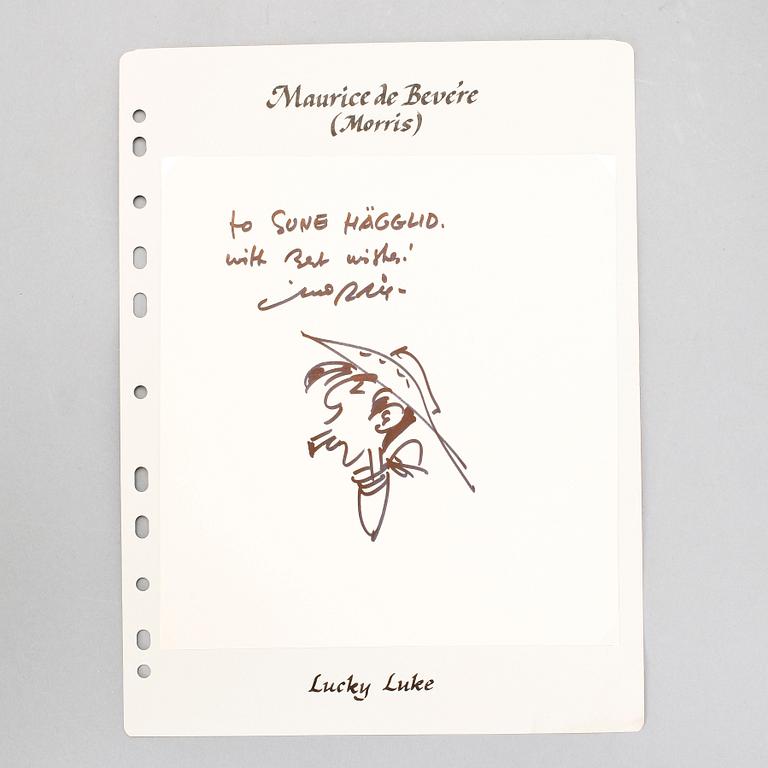 Maurice de Bevére
(Morris)
to SUNE HÄGGLID.
with Best wishes!
morris-
Lucky Luke